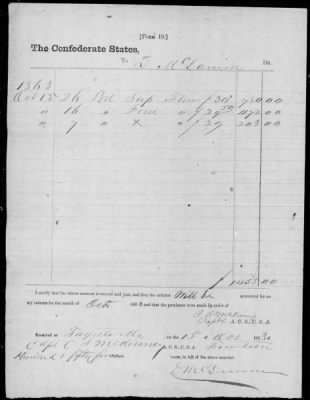 [FORM 19.]
The Confederate States,
To Dr.
1863
Oct 15 26 Bbl Sup Flour / 30 780 00
" 16 " Fine " / 29 50 472 00
" 7 " X " / 29 203 00
/ 1455 00
I certify that the above account is correct and just, and that the articles will be accounted for on
my return for the month of Oct 186 3 and that the purchases were made by order of
Capt. A. C. S., C. S. A.
Received at Fayetteville the 15 of Oct 186 3 of
Capt. C. A. C. S., C. S. A. Fourteen
Hundred & fifty five
DOLLARS, in full of the above account.